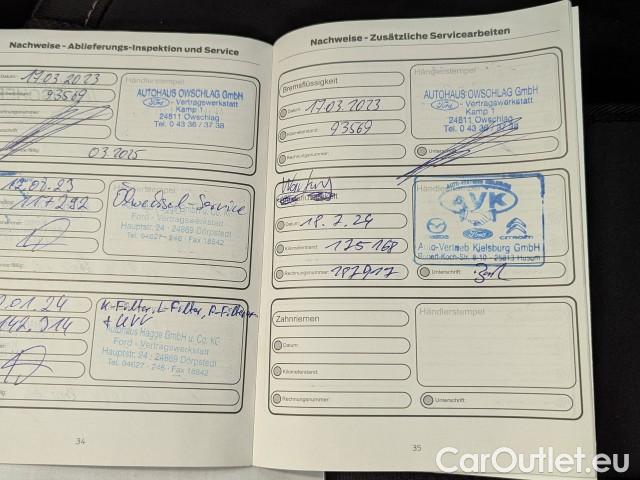 Nachweise - Ablieferungs-Inspektion und Service
Datum:
17.03.2023
93569
Händlerstempel
AUTOHAUS OWSCHLAG GmbH
Ford - Vertragswerkstatt
Kamp 1
24811 Owschlag
Tel. 0 43 36 / 37 38
03.2025
12.08.23
117292
Ölwechsel-Service
Ford - Vertragswerkstatt
Hauptstr. 24 - 24869 Dörpstedt
Tel. 04627 - 246 - Fax 18842
01.24
142.314
K-Filter, L-Filter, P-Filter
Autohaus Hagge GmbH u. Co. KC
Ford - Vertragswerkstatt
Hauptstr. 24 - 24869 Dörpstedt
Tel. 04627 - 246 - Fax 18842
34
Nachweise - Zusätzliche Servicearbeiten
Bremsflüssigkeit
Datum:
17.03.2023
Kilometerstand:
93569
Rechnungsnummer:
Händlerstempel
AUTOHAUS OWSCHLAG GmbH
Ford - Vertragswerkstatt
Kamp 1
24811 Owschlag
Tel. 0 43 36 / 37 38
Unterschrift:
Wartung
Datum:
18.7.24
Kilometerstand:
175168
Rechnungsnummer:
187917
AVK
Ford
CITROËN
Auto-Vertrieb Kjelsburg GmbH
Robert-Koch-Str. 8-10 - 25813 Husum
Unterschrift:
Zahnriemen
Datum:
Kilometerstand:
Rechnungsnummer:
Händlerstempel
Unterschrift:
35
CarOutlet.eu